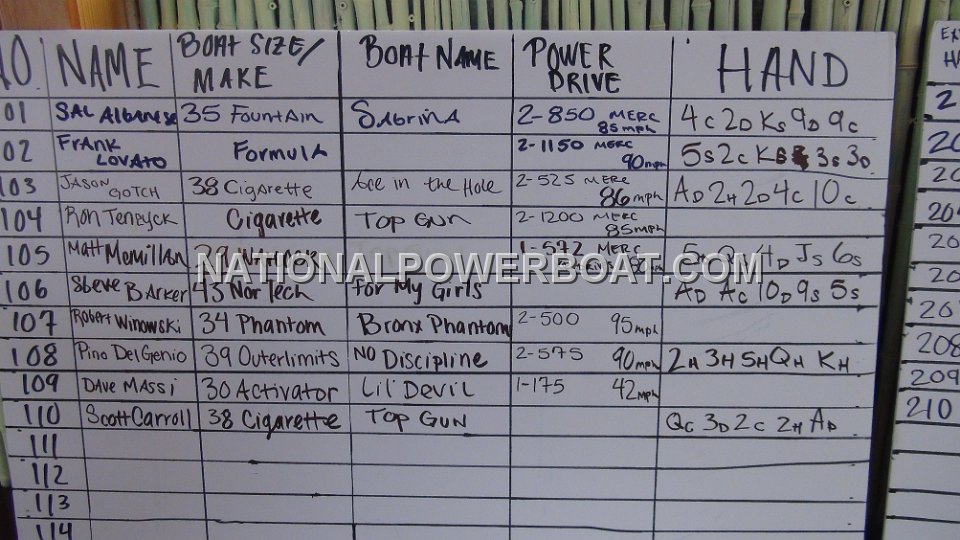 NO. NAME BOAT SIZE/ MAKE BOAT NAME POWER DRIVE HAND
01 SAL Albanese 35 Fountain Sabrina 2-850 MERC 85mph 4C 2D KS 9D 9C
02 FRANK LOVATO Formula 2-1150 MERC 90mph 5S 2C K 3S 3D
103 JASON GOTCH 38 Cigarette Ace in the Hole 2-525 MERC 86mph AD 2H 2D 4C 10C
104 Ron Teneyck Cigarette TOP GUN 2-1200 MERC 85mph
105 Matt Mcmillan 1-572 MERC 4D JS 6S
NATIONALPOWERBOAT.COM
106 Steve BARKER 43 Nor Tech for My Girls AD AC 10D 9S 5S
107 Robert Winowski 34 Phantom Bronx Phantom 2-500 95mph
108 Pino DelGenio 39 Outerlimits NO Discipline 2-575 90mph 2H 3H 5H QH KH
109 DAVE MASSI 30 Activator Lil' Devil 1-175 42mph
110 Scott Carroll 38 Cigarette TOP GUN QC 3D 2C 2H AD
111
112
113
114
208
209
210